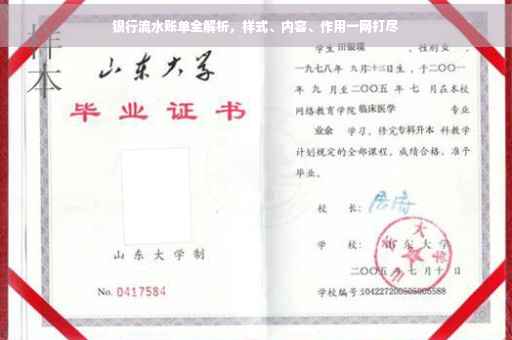 银行流水账单全解析，样式、内容、作用一网打尽
样本
山东大学
毕业证书
山东大学制
No. 0417584
学生 田银瑞 ，性别 女 ，
一九七八年 九月十二日生，于二〇〇一
年 九 月至二〇〇五 年 七 月在本校
网络教育学院 临床医学 专业
业余 学习，修完专科升本 科教学
计划规定的全部课程，成绩合格，准予
毕业。
校 长：
学 校： 山东大学
二〇〇五 年 七 月十 日
学校编号:104227200505005588
山东大学